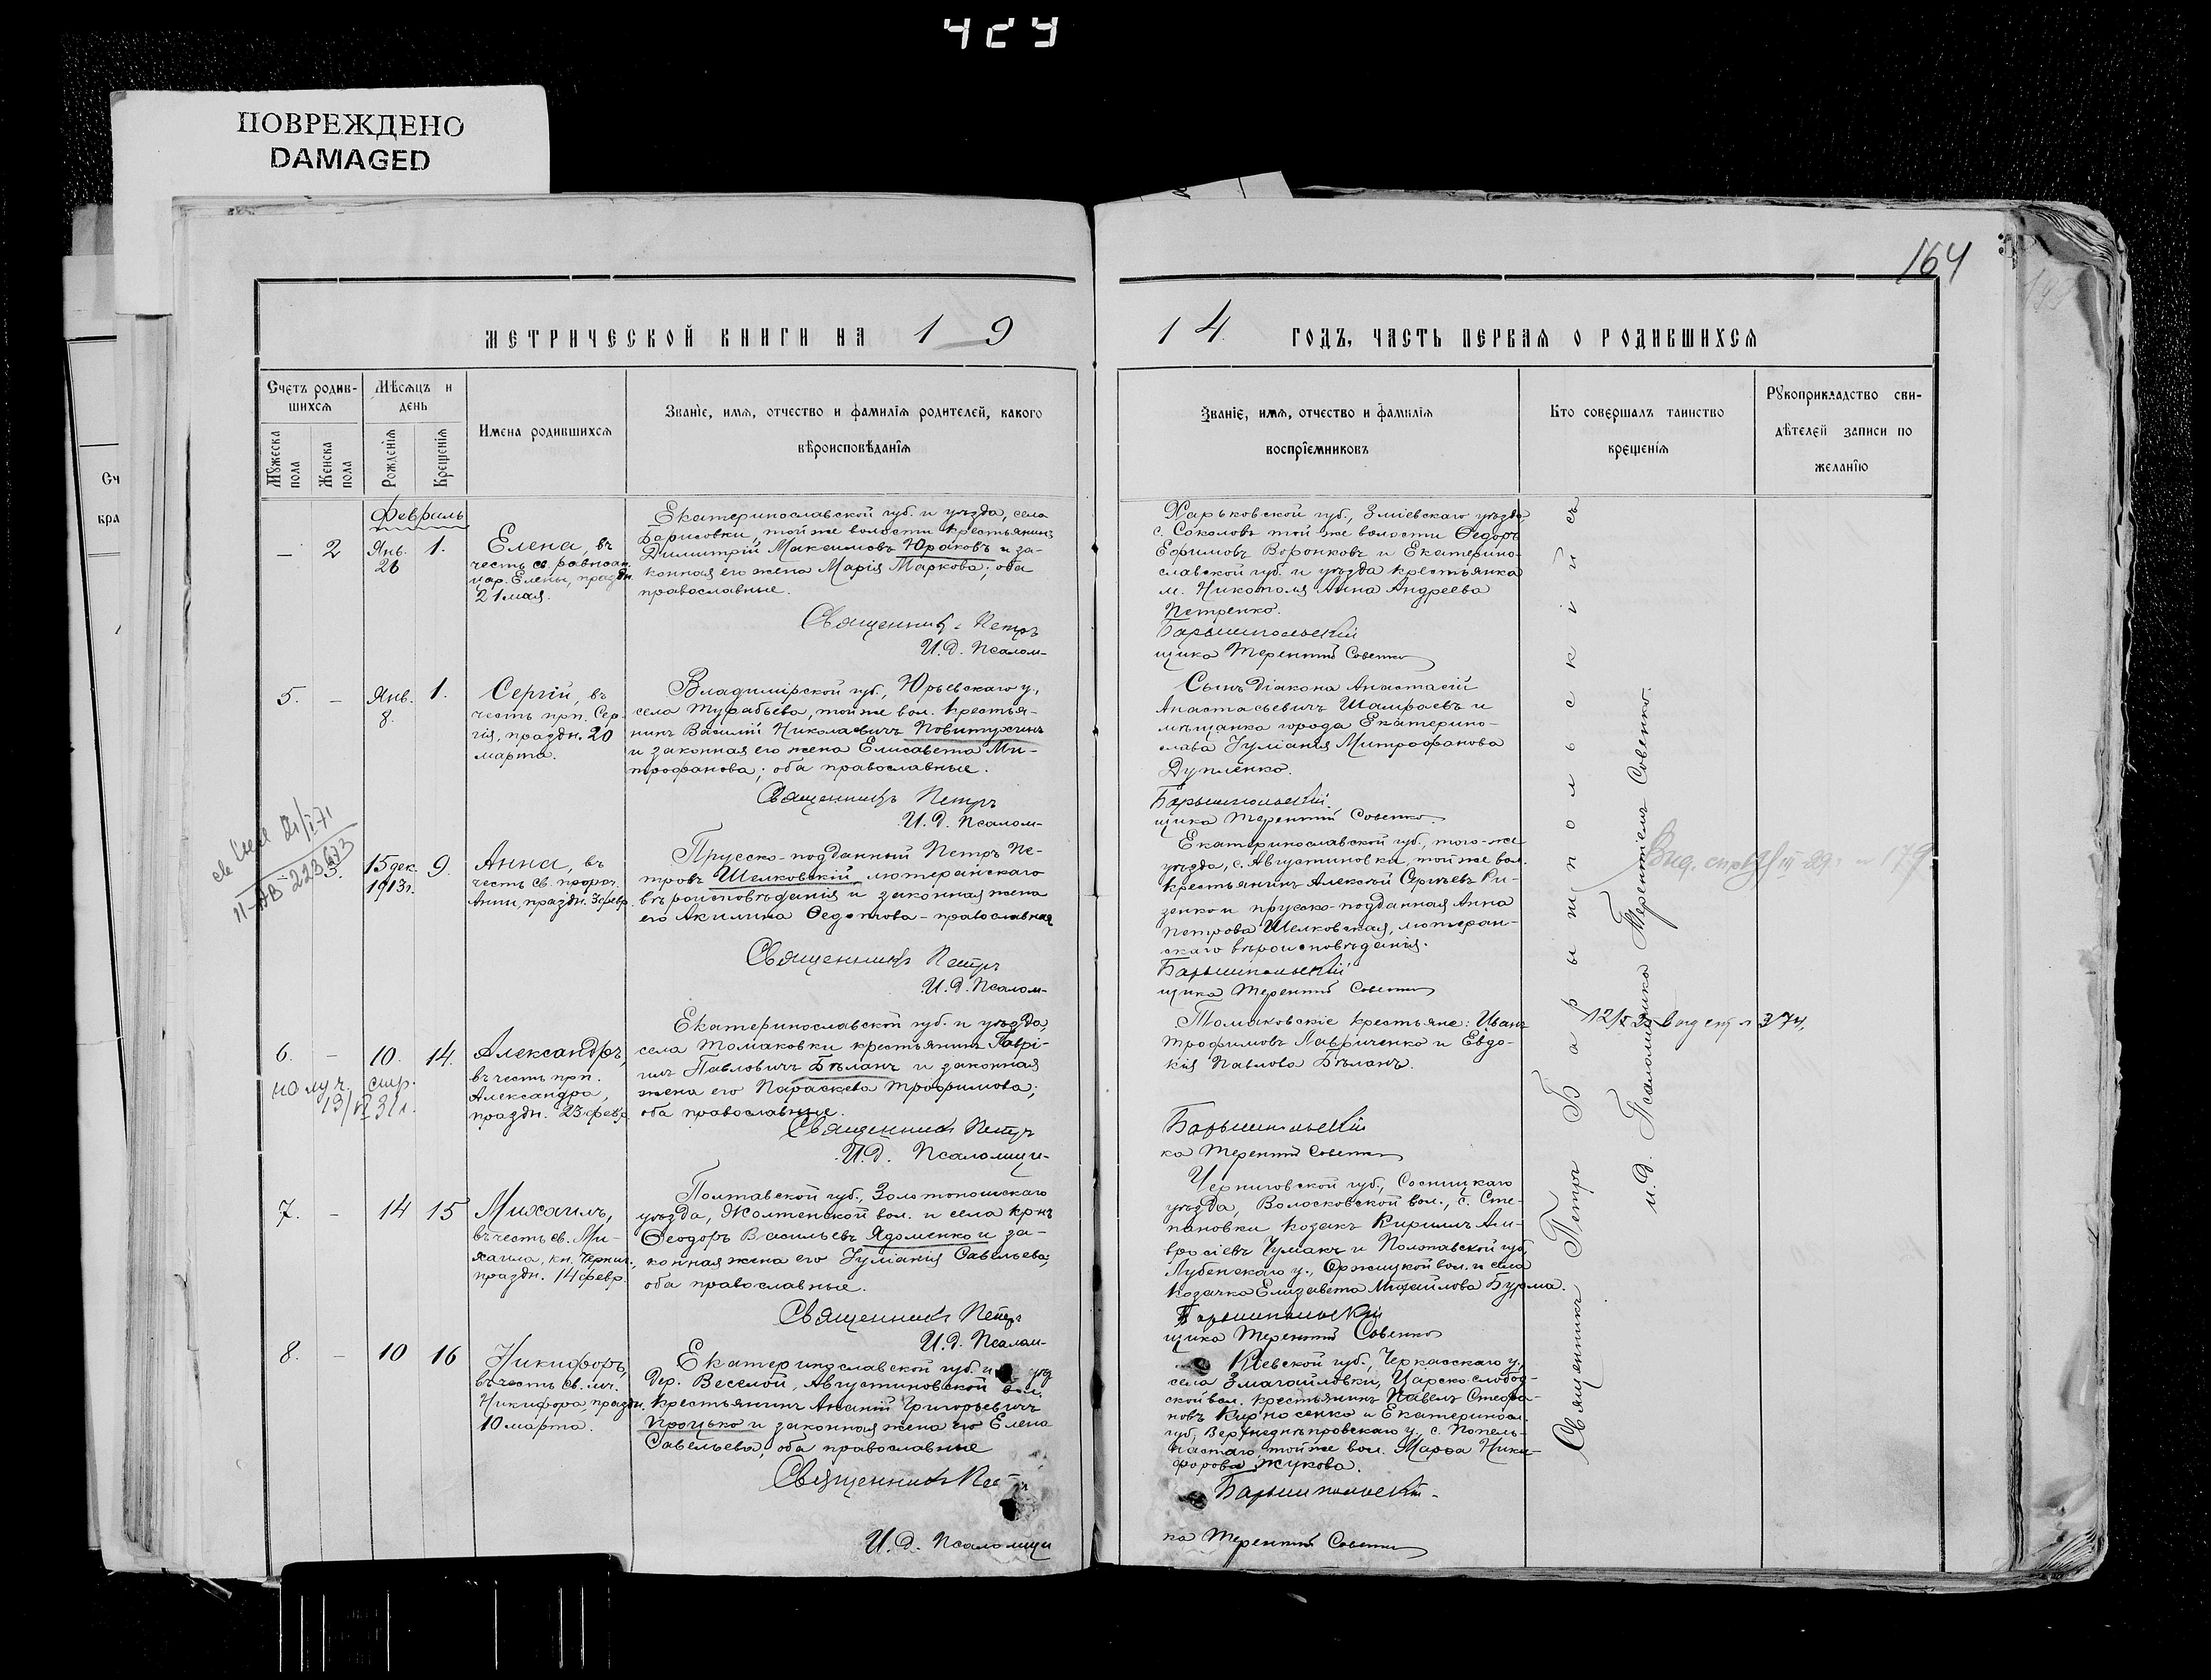 429
ПОВРЕЖДЕНО
DAMAGED
164
МЕТРИЧЕСКОЙ КНИГИ НА 19
14 ГОДЪ, ЧАСТЬ ПЕРВАЯ О РОДИВШИХСЯ
Счетъ родив-
шихся
Мѣсяцъ и
день
Мужеска
пола
Женска
пола
Рожденія
Крещенія
Имена родившихся
Званіе, имя, отчество и фамилія родителей, какого
вѣроисповѣданія
Званіе, имя, отчество и фамилія
воспріемниковъ
Кто совершалъ таинство
крещенія
Рукоприкладство сви-
дѣтелей записи по
желанію
Февраль
– 2 Янв. 26 1.
Елена, въ
честь св. равноап.
цар. Елены, праздн.
21 мая.
Екатеринославской губ. и уѣзда, села
Борисовки, той же волости крестьянинъ
Димитрій Максимовъ Юраковъ и за-
конная его жена Марія Маркова; оба
православные.
Священникъ Петръ
И. Д. Псалом-
Харьковской губ., Зміевскаго уѣзда,
с. Соколовъ той же волости Ѳедоръ
Ефимовъ Воронковъ и Екатерино-
славской губ. и уѣзда крестьянка
м. Никополя Анна Андреева
Петренко.
Барышпольскій
щика Терентій Совенко
5. – Янв. 8. 1.
Сергій, въ
честь прп. Сер-
гія, праздн. 20
марта.
Владимірской губ., Юрьевскаго у.,
села Турабьева, той же вол. крестья-
нинъ Василій Николаевичъ Повитухинъ
и законная его жена Елисавета Ми-
трофанова; оба православные.
Священникъ Петръ
И. Д. Псалом-
Сынъ діакона Анастасій
Анастасьевичъ Шамраевъ и
мѣщанка города Екатерино-
слава Іуліанія Митрофанова
Дупленко.
Барышпольскій
щика Терентій Совенко
– 3. 15 дек. 1913 г. 9.
Анна, въ
честь св. пророч.
Анны, праздн. 3 февр.
Прусско-подданный Петръ Пе-
тровъ Шелковскій лютеранскаго
вѣроисповѣданія и законная жена
его Акилина Ѳедотова – православная
Священникъ Петръ
И. Д. Псалом-
Екатеринославской губ., того-же
уѣзда, с. Августиновки, той же вол.
крестьянинъ Алексѣй Сергѣевъ Ри-
зенко и прусско-подданная Анна
Петрова Шелковская, лютеран-
скаго вѣроисповѣданія.
Барышпольскій
щика Терентій Совенко
6. – 10. 14.
Александръ,
въ честь прп.
Александра,
праздн. 23 февр.
Екатеринославской губ. и уѣзда,
села Томаковки крестьянинъ Гаврі-
илъ Павловичъ Бѣланъ и законная
жена его Параскева Трофимова;
оба православные.
Священникъ Петръ
И. Д. Псаломщи-
Томаковскіе крестьяне: Иванъ
Трофимовъ Лавриченко и Евдо-
кія Павлова Бѣланъ.
Барышпольскій
ка Терентій Совенко
7. – 14 15
Михаилъ,
въ честь св. Ми-
хаила, кн. Черниг.,
праздн. 14 февр.
Полтавской губ., Золотоношскаго
уѣзда, Жолтенской вол. и села крнъ
Ѳеодоръ Васильевъ Ядоменко и за-
конная жена его Іуліанія Савельева;
оба православные.
Священникъ Петръ
И. Д. Псалом-
Черниговской губ., Сосницкаго
уѣзда, Волосковской вол., с. Сте-
пановки козакъ Кириллъ Ам-
вросіевъ Чумакъ и Полтавской губ.,
Лубенскаго у., Оржицкой вол. и села
козачка Елизавета Михайлова Бурма.
Барышпольскій
щика Терентій Совенко
8. – 10 16
Никифоръ,
въ честь св. мч.
Никифора, праздн.
10 марта.
Екатеринославской губ. и
дер. Веселой, Августиновской вол.
крестьянинъ Ананій Григорьевичъ
Процько и законная жена его Елена
Савельева, оба православные
Священникъ
И. Д. Псаломщи
Кіевской губ., Черкасскаго у.,
села Змагайловки, Царско-слобод-
ской вол. крестьянинъ Павелъ Стефа-
новъ Кирносенко и Екатериносл.
губ., Верхнеднѣпровскаго у. с. Попель-
настаго, той же вол. Марѳа Ники-
форова Жукова.
Барышпольскій
ка Терентій Совенко
Священникъ Петръ Барышпольскій съ
и. д. Псаломщика Терентіемъ Совенко.